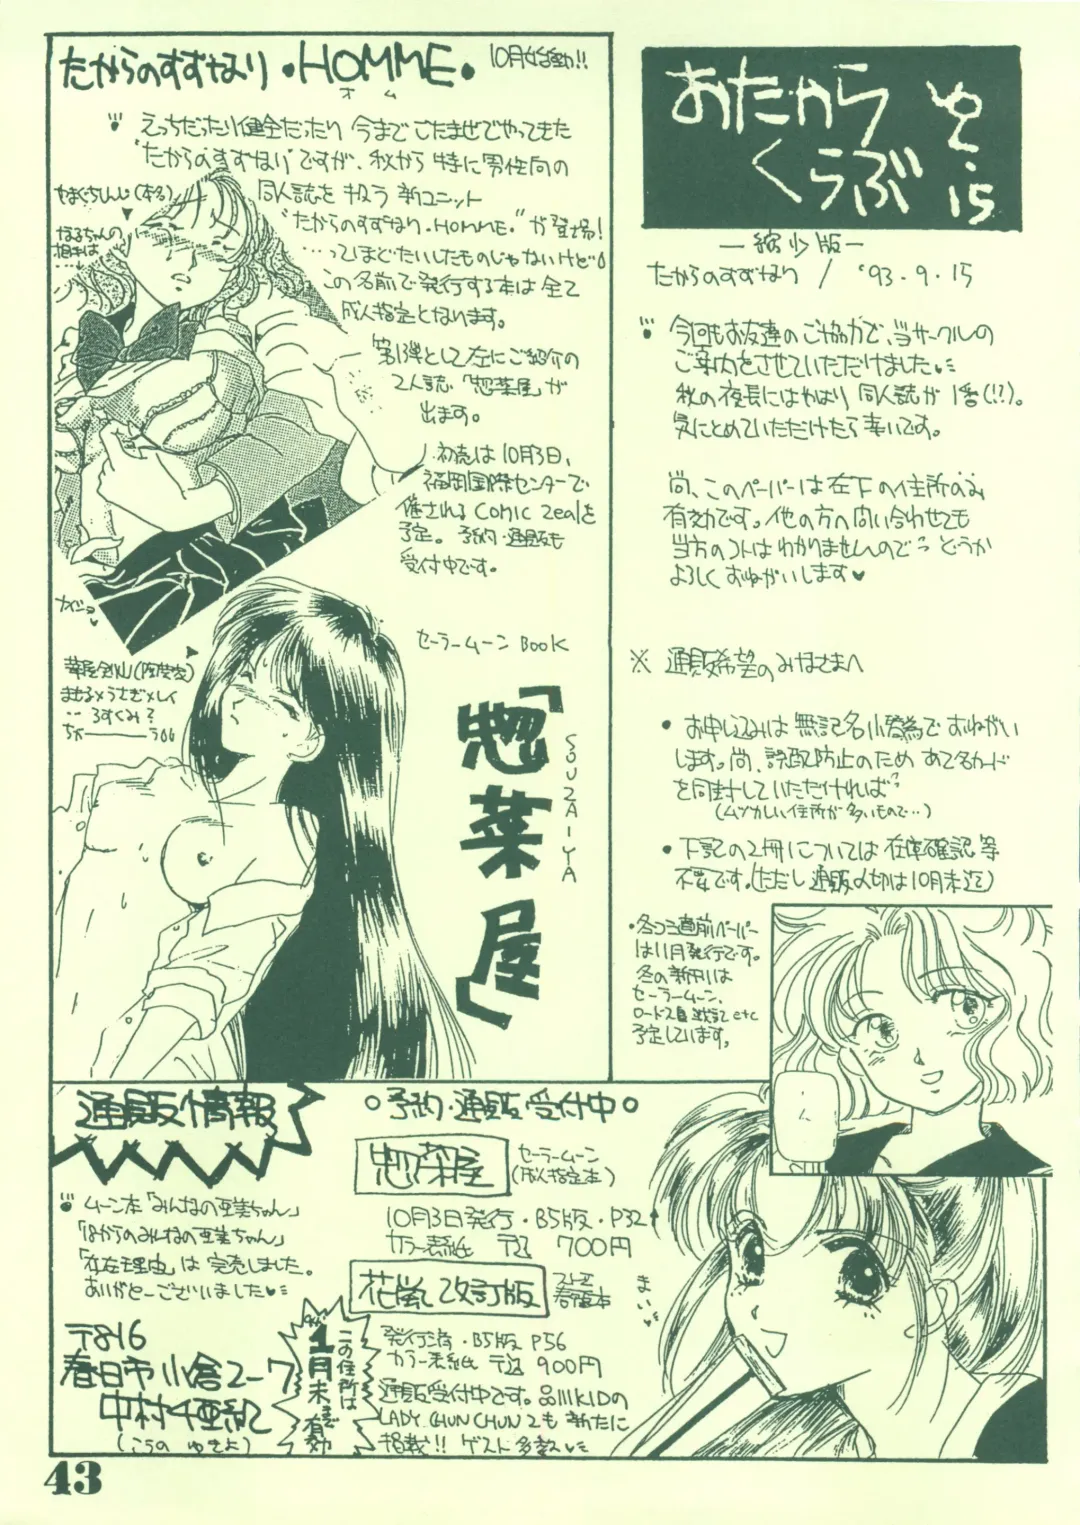 たからのすずなり・HOMME・
オム
10月始動!!
えっちだったり健全だったり 今まで ごたまぜでやってきた
"たからのすずなり"ですが、秋から 特に男性向の
同人誌を扱う 新ユニット
"たからのすずなり・HOMME・"が登場!
…ってほど たいしたものじゃないけど
この名前で発行する本は全て
成人指定となります。
第1弾として左にご紹介の
2人誌「惣菜屋」が
出ます。
初売は10月3日、
福岡国際センターで
催されるComic Zealを
予定。予約・通販も
受付中です。
なるちゃんの
相手は
セーラームーン BOOK
「惣菜屋」
SOUZAIYA
まもる×うさぎ×レイ
おたから
くらぶ
15
―縮少版―
たからのすずなり / '93・9・15
今回もお友達のご協力で、当サークルの
ご案内をさせていただけました
秋の夜長にはやはり 同人誌が 1番(!?)。
気にとめていただけたら幸いです。
尚、このペーパーは左下の住所のみ
有効です。他の方へ問い合わせても
当方のコトはわかりませんので どうか
よろしく おねがいします♥
※ 通販希望のみなさまへ
・お申し込みは 無記名小為替で おねがい
します。尚、誤配防止のため あて名カード
を同封していただければ
(ムヅカしい住所が多いもので…)
・下記の2冊については 在庫確認 等
不要です。(ただし 通販〆切は10月末迄)
・冬コミ直前ペーパー
は11月発行です。
冬の新刊は
セーラームーン、
ロードス島戦記 etc
予定しています。
通販情報
ムーン本「みんなの亜美ちゃん」
「18からのみんなの亜美ちゃん」
「存在理由」は 完売しました。
ありがとーございました♥
〒816
春日市小倉2-7
中村千亜紀
(こうの ゆきよ)
この住所は
'94
1月末まで有効
○予約・通販受付中○
惣菜屋
セーラームーン
(成人指定本)
10月3日発行・B5版・P32
カラー表紙 〒込 700円
花嵐 改訂版
発行済・B5版 P56
カラー表紙 〒込 900円
通販受付中です。品川KIDの
LADY CHUN CHUN 2も 新たに
掲載!! ゲスト多数
43